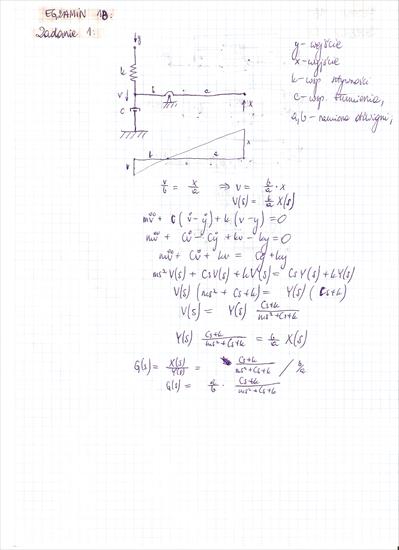 EGZAMIN 1B.
Zadanie 1:
y
k
v
b
a
c
x
b
a
x
v
y - wejście
x - wyjście
k - wsp. sztywności
c - wsp. tłumienia,
a, b - ramiona dźwigni,
v/b = x/a ⇒ v = b/a · x
V(s) = b/a X(s)
mv̈ + C(v̇ - ẏ) + k(v - y) = 0
mv̈ + Cv̇ - Cẏ + kv - ky = 0
mv̈ + Cv̇ + kv = Cẏ + ky
ms²V(s) + CsV(s) + kV(s) = CsY(s) + kY(s)
V(s) (ms² + Cs + k) = Y(s) (Cs+k)
V(s) = Y(s) (Cs+k)/(ms²+Cs+k)
Y(s) (Cs+k)/(ms²+Cs+k) = b/a X(s)
G(s) = X(s)/Y(s) = (Cs+k)/(ms²+Cs+k) / b/a
G(s) = a/b · (Cs+k)/(ms²+Cs+k)